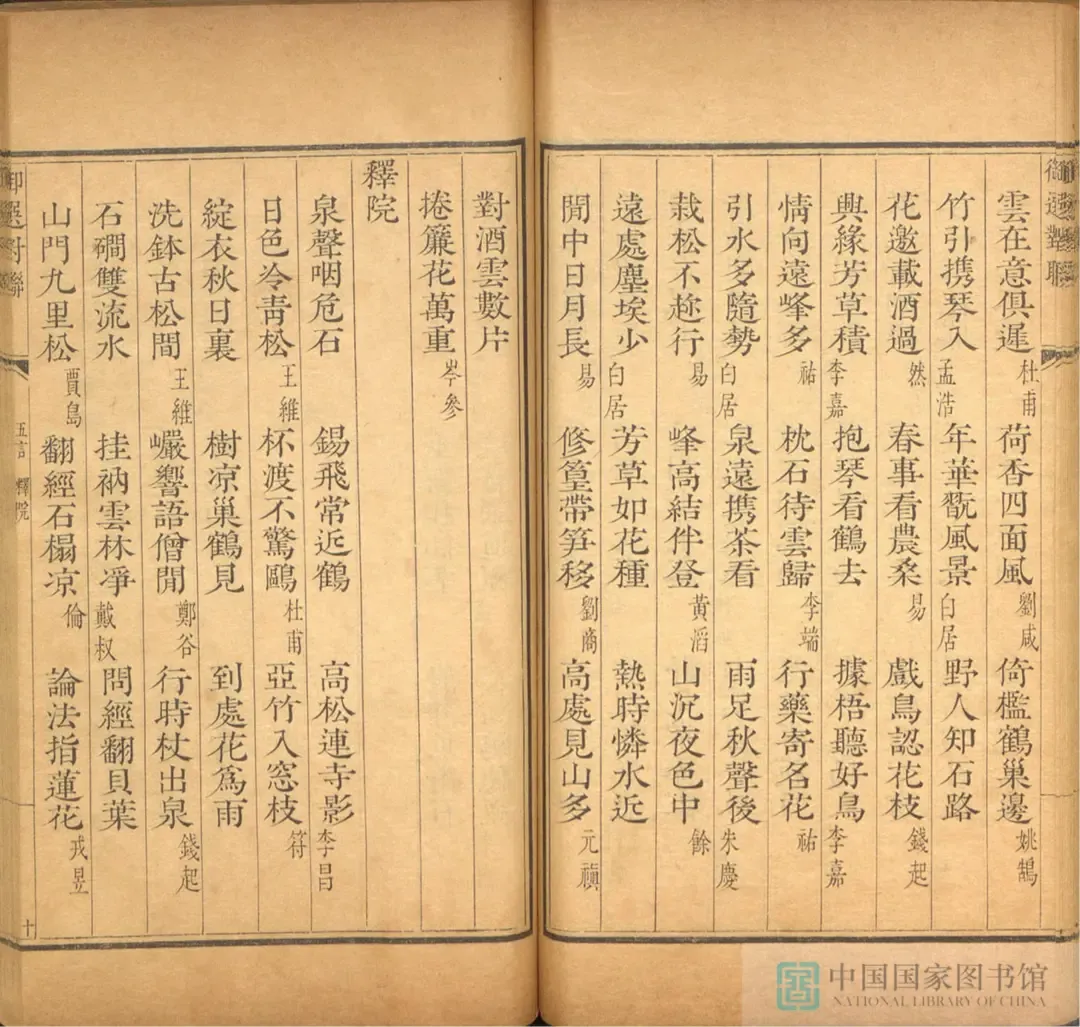 御選對聯
雲在意俱遲 杜甫 荷香四面風 劉咸 倚檻鶴巢邊 姚鵠
竹引携琴入 孟浩 年華翫風景 白居 野人知石路
花邀載酒過 然 春事看農桑 易 戲鳥認花枝 錢起
興緣芳草積 李嘉 抱琴看鶴去 據梧聽好鳥 李嘉
情向遠峰多 祐 枕石待雲歸 李端 行藥寄名花 祐
引水多隨勢 白居 泉遠携茶看 雨足秋聲後 朱慶
栽松不趂行 易 峰高結伴登 黄滔 山沉夜色中 餘
遠處塵埃少 白居 芳草如花種 熱時憐水近
閒中日月長 易 修篁帶笋移 劉商 高處見山多 元稹
對酒雲數片
捲簾花萬重 岑參
釋院
泉聲咽危石 錫飛常近鶴 高松連寺影 李昌
日色冷青松 王維 杯渡不驚鷗 杜甫 亞竹入窓枝 符
綻衣秋日裏 樹凉巢鶴見 到處花爲雨
洗鉢古松間 王維 巗響語僧閒 鄭谷 行時杖出泉 錢起
石磵雙流水 挂衲雲林凈 戴叔 問經翻貝葉
山門九里松 賈島 翻經石榻凉 倫 論法指蓮花 戎昱
御選對聯 五言 釋院 十
中国国家图书馆
NATIONAL LIBRARY OF CHINA